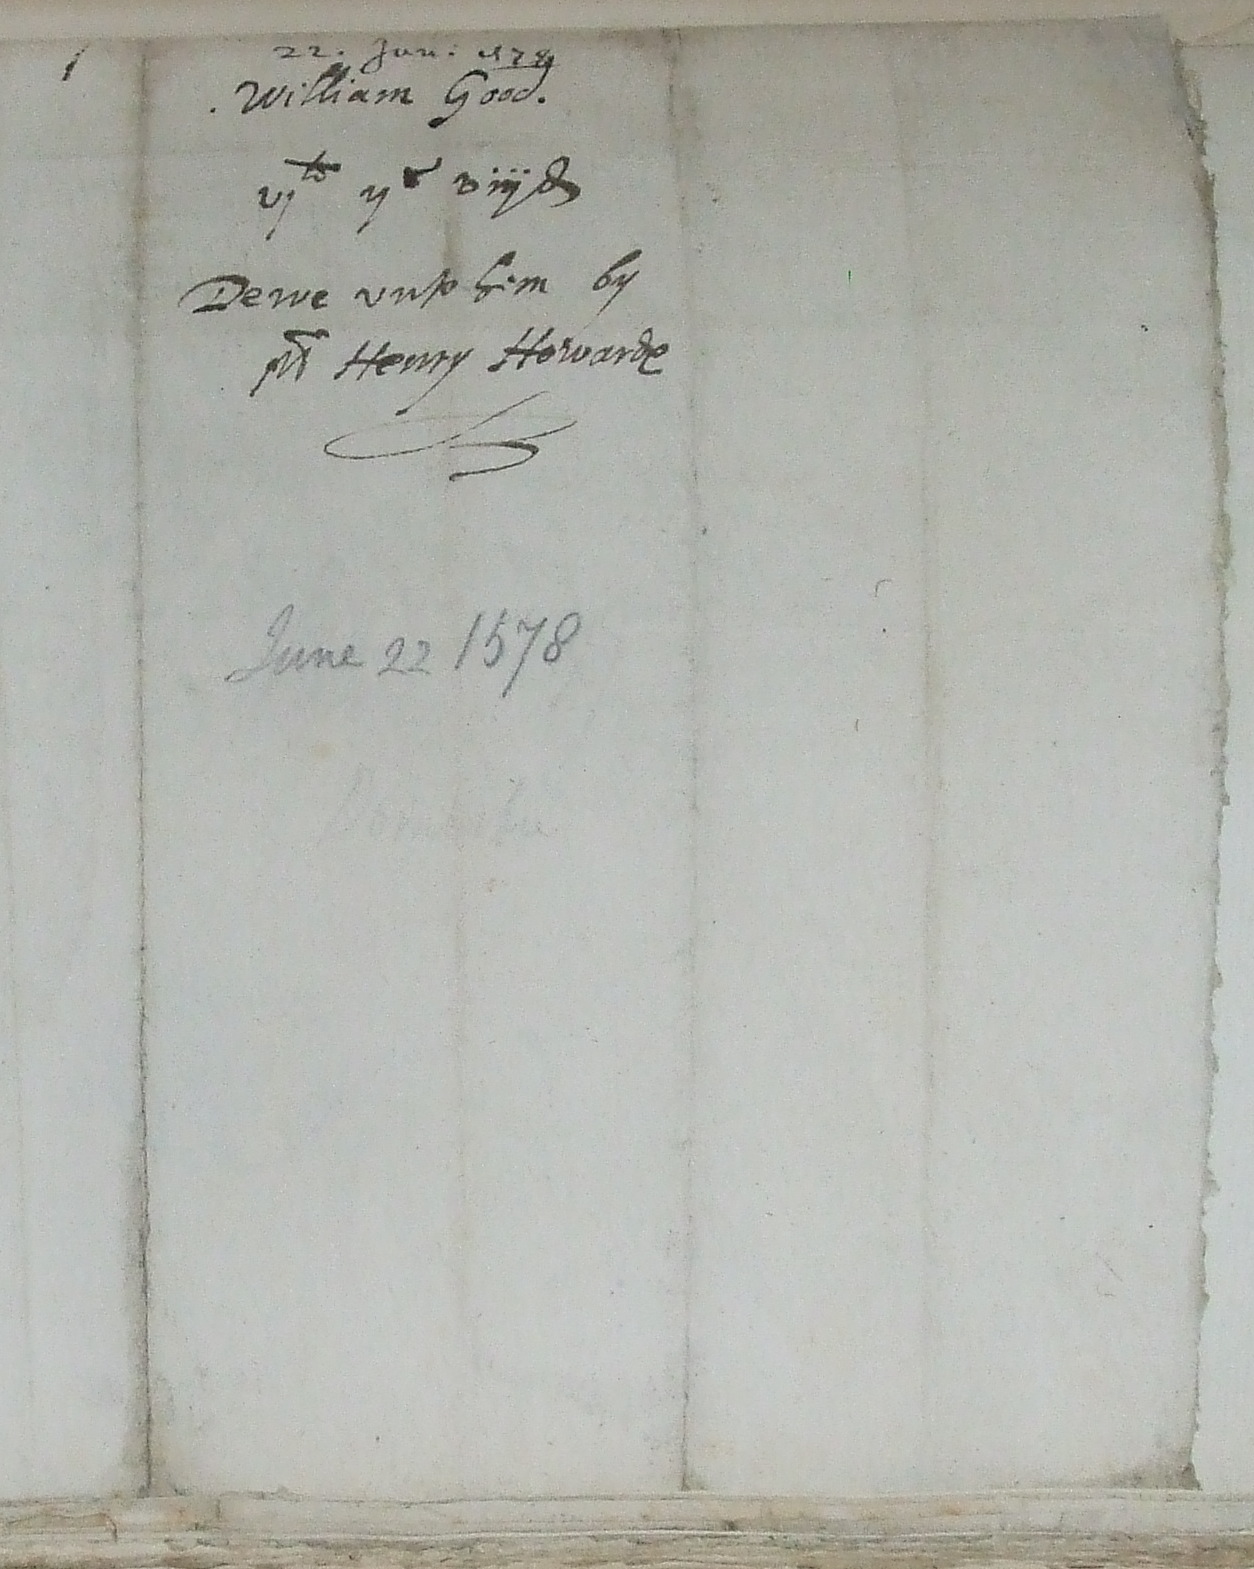 22. Jun: 1578
William Good.
vj li ij s viij d
Dewe unto him by
Mr Henry Howarde
June 22 1578